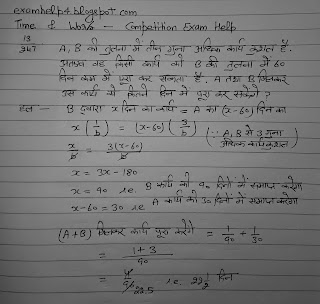 examhelp4.blogspot.com
Time & Work - Competition Exam Help
13
347
A, B की तुलना में तीन गुना अधिक कार्य कुशल है.
अतएव वह किसी कार्य को B की तुलना में 60
दिन कम में पूरा कर सकता है. A तथा B मिलकर
उस कार्य को कितने दिन में पूरा कर सकेंगे ?
हल — B द्वारा x दिन का कार्य = A का (x-60) दिन का
x (1/b) = (x-60) (3/b) (∵ A, B से 3 गुना
अधिक कार्यकुशल)
x/b = 3(x-60)/b
x = 3x - 180
x = 90 i.e. B कार्य को 90 दिनों में समाप्त करेगा
x-60 = 30 i.e. A कार्य को 30 दिनों में समाप्त करेगा
(A+B) मिलकर कार्य पूरा करेंगे = 1/90 + 1/30
= 1+3/90
= 4/90 22.5 i.e. 22 1/2 दिन